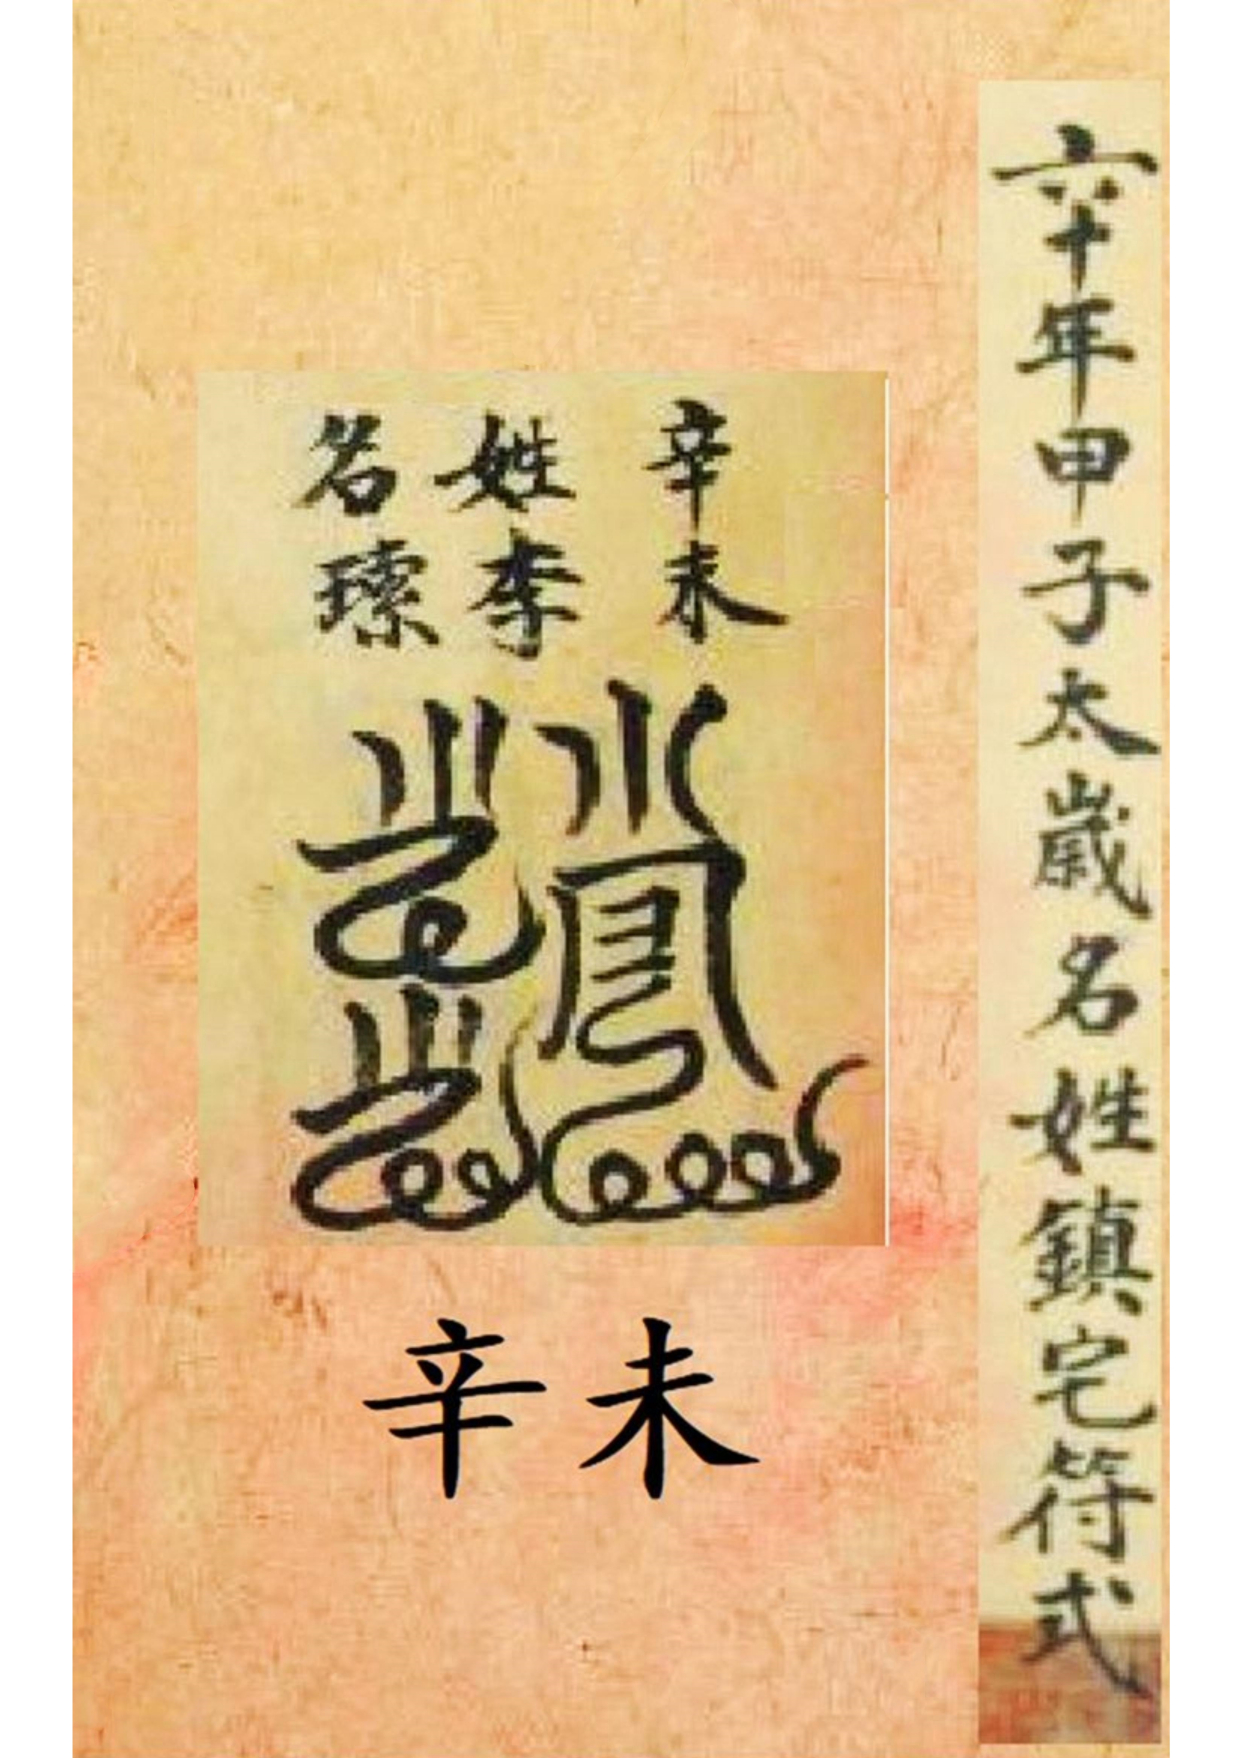 六十年甲子太歲名姓鎮宅符式
辛未
姓李
名
辛未